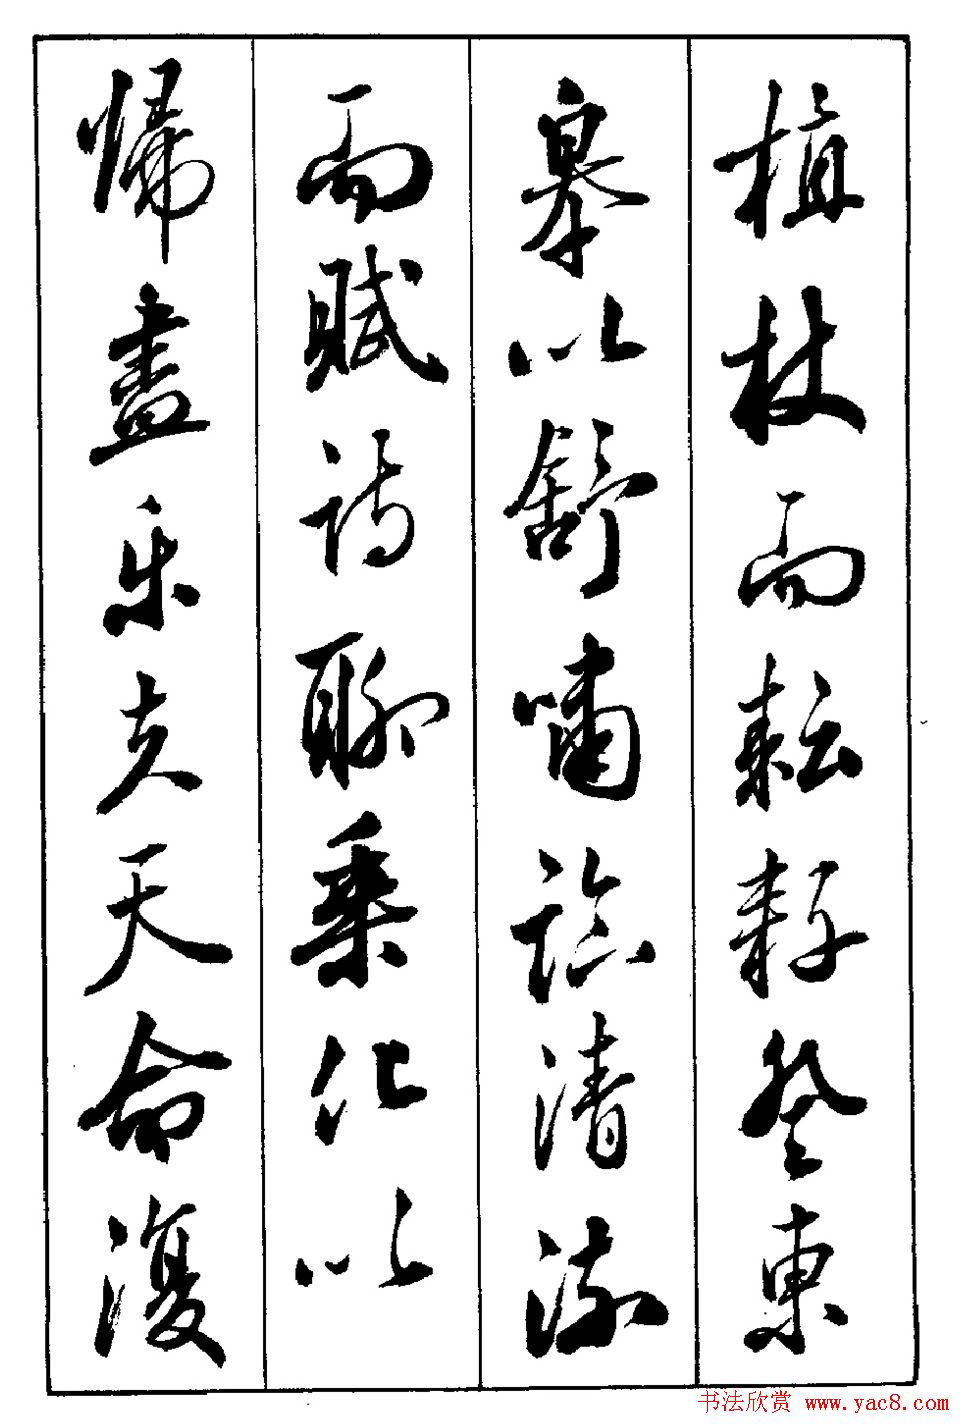 植杖而耘耔登東
皋以舒嘯臨清流
而賦詩聊乘化以
歸盡樂夫天命復
书法欣赏 www.yac8.com